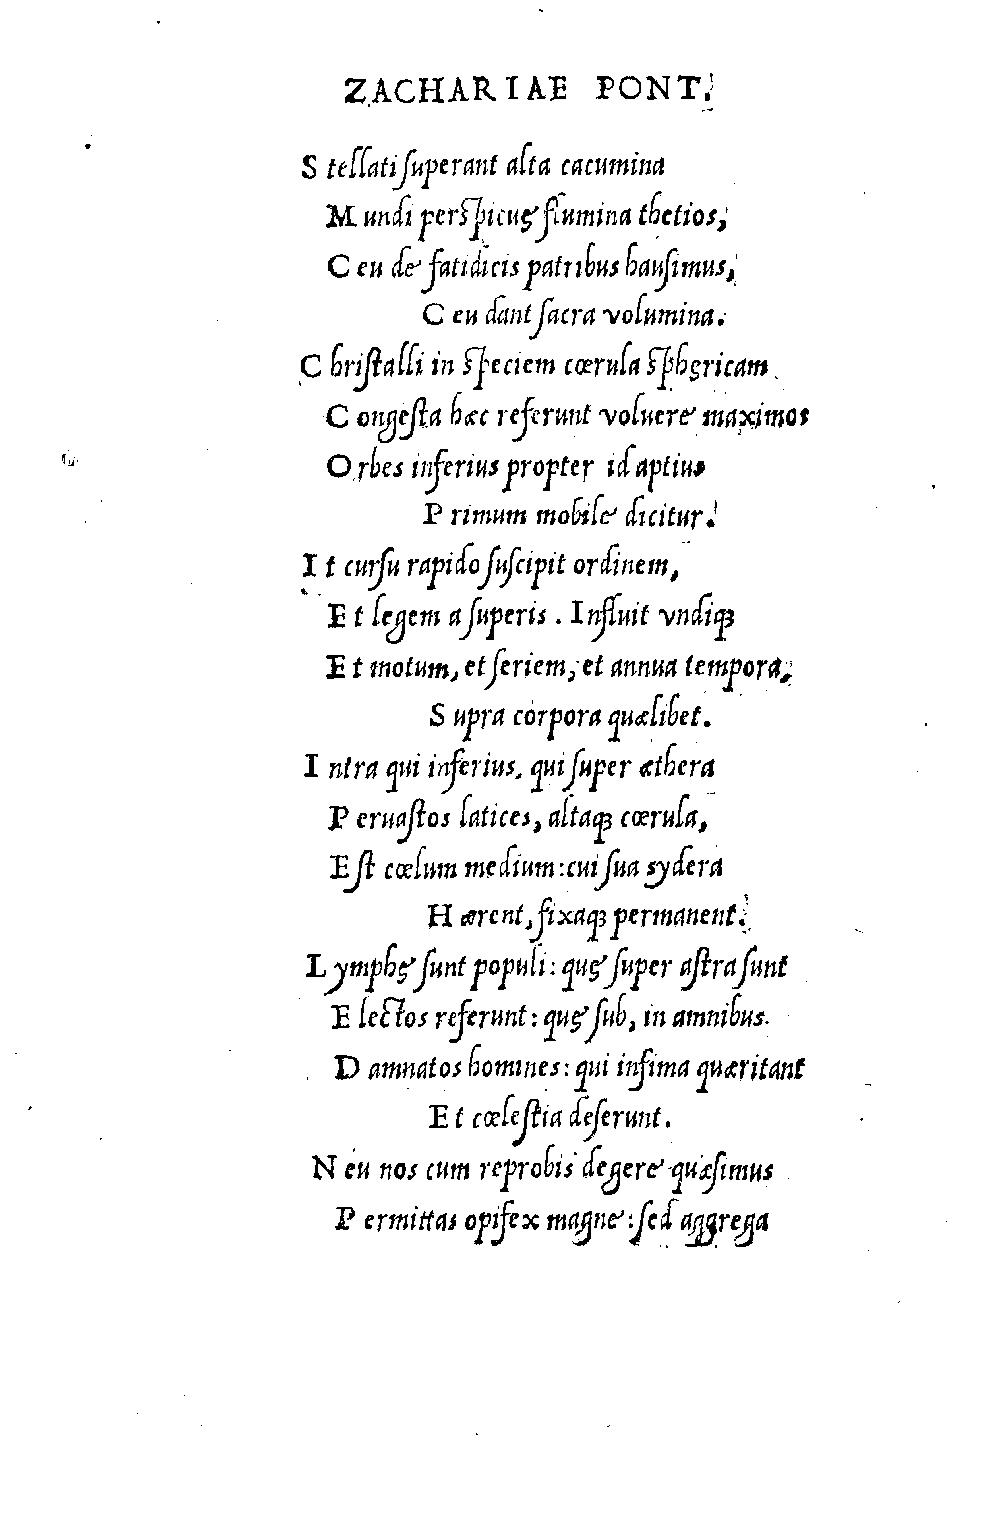 ZACHARIAE PONT.
S tellati ſuperant alta cacumina
M undi perſpicuę flumina thetios,
C eu de fatidicis patribus hauſimus,
C eu dant ſacra volumina.
C hriſtalli in ſpeciem cœrula ſphęricam
C ongeſta hæc referunt voluere maximos
O rbes inferius propter id aptius
P rimum mobile dicitur.
I t curſu rapido ſuſcipit ordinem,
E t legem a ſuperis . Influit vndiqꝫ
E t motum, et ſeriem, et annua tempora,
S upra corpora quælibet.
I ntra qui inferius, qui ſuper æthera
P eruaſtos latices, altaqꝫ cœrula,
E ſt cœlum medium: cui ſua sydera
H ærent, fixaqꝫ permanent.
L ymphę ſunt populi: quę ſuper aſtra ſunt
E lectos referunt: quę ſub, in amnibus.
D amnatos homines: qui infima quæritant
E t cœleſtia deſerunt.
N eu nos cum reprobis degere quæſimus
P ermittas opifex magne: ſed aggrega